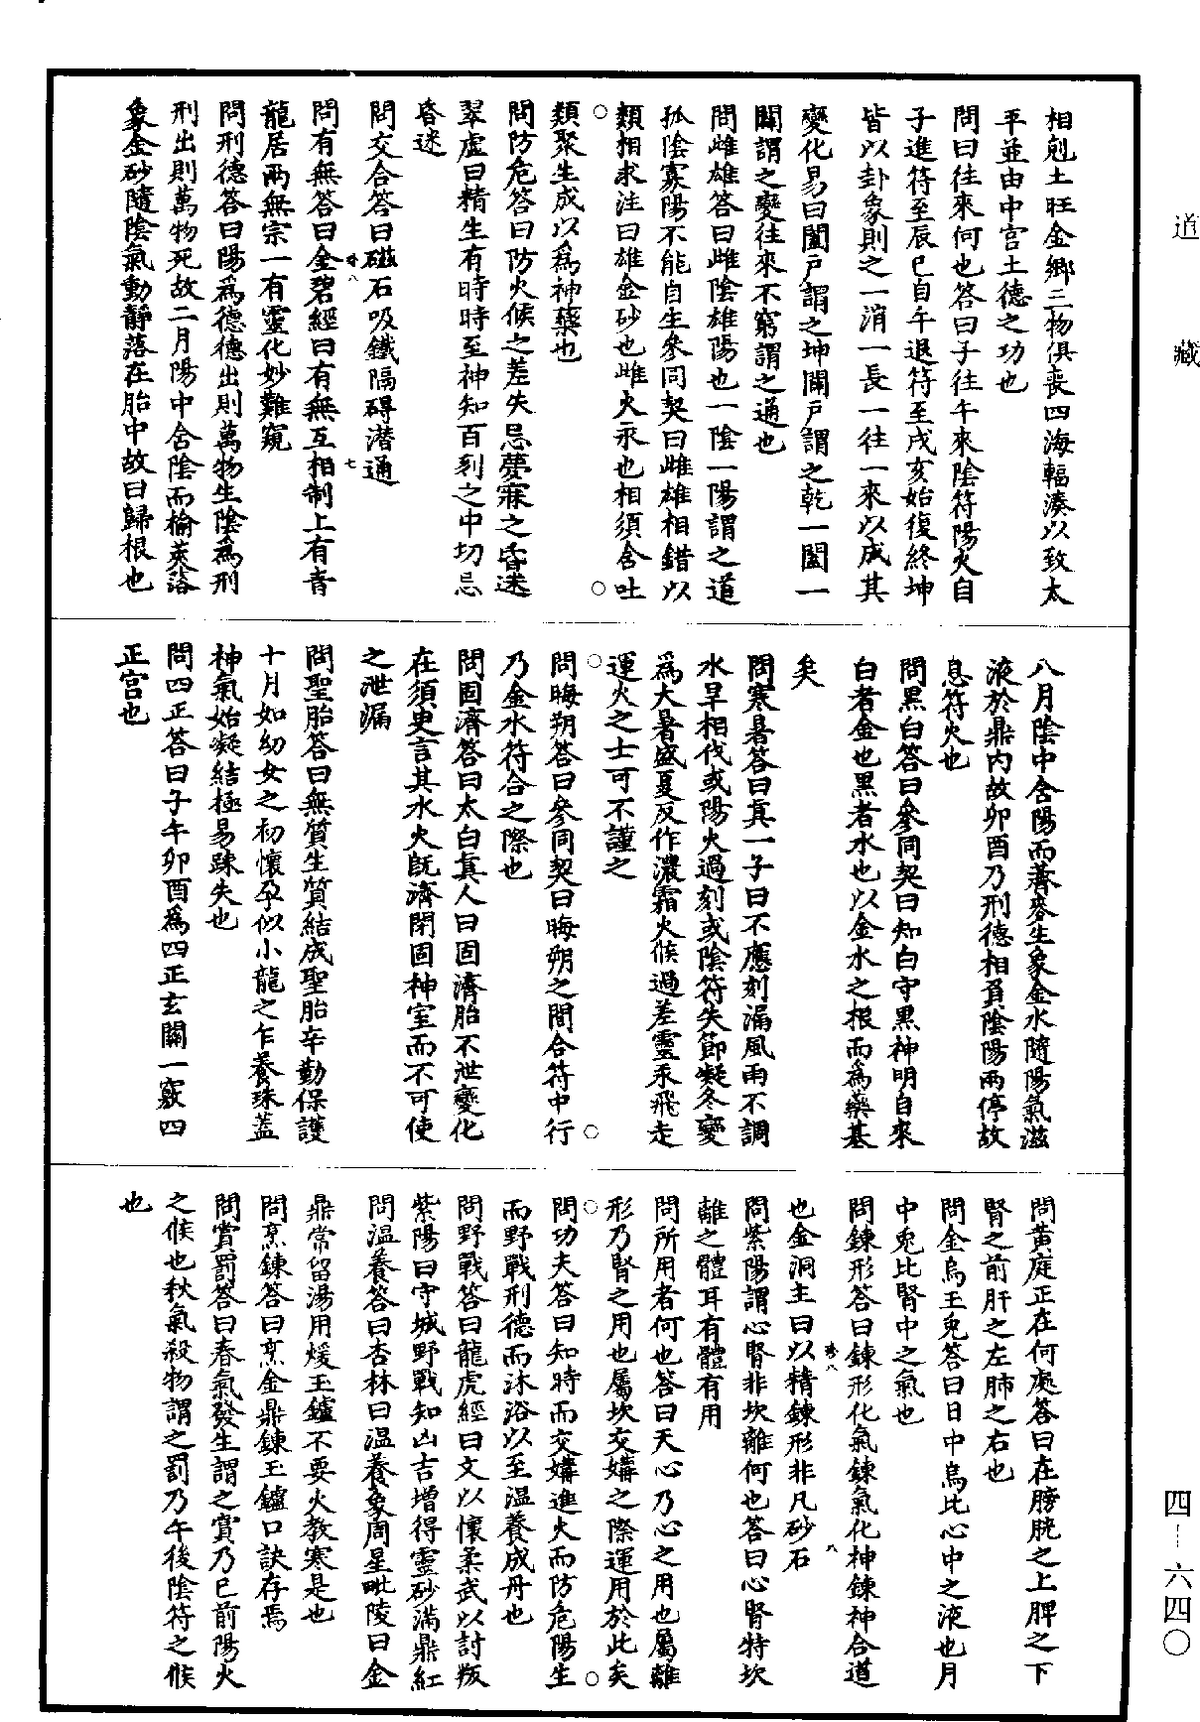 道藏
相剋土旺金鄉三物俱喪四海輻湊以致太
平並由中宮土德之功也
問曰往來何也答曰子往午來陰符陽火自
子進符至辰巳自午退符至戌亥始復終坤
皆以卦象則之一消一長一往一來以成其
變化易曰闔戶謂之坤闢戶謂之乾一闔一
闢謂之變往來不窮謂之通也
問雌雄答曰雌陰雄陽也一陰一陽謂之道
孤陰寡陽不能自生參同契曰雌雄相錯以
類相求注曰雄金砂也雌火汞也相須含吐
類聚生成以爲神藥也
問防危答曰防火候之差失忌夢寐之昏迷
翠虛曰精生有時時至神知百刻之中切忌
昏迷
問交合答曰磁石吸鐵隔碍潜通
問有無答曰金碧經曰有無互相制上有青
龍居兩無宗一有靈化妙難窺
問刑德答曰陽爲德德出則萬物生陰爲刑
刑出則萬物死故二月陽中含陰而榆莢落
象金砂隨陰氣動靜落在胎中故曰歸根也
八月陰中含陽而薺麥生象金水隨陽氣滋
液於鼎內故卯酉乃刑德相負陰陽兩停故
息符火也
問黑白答曰參同契曰知白守黑神明自來
白者金也黑者水也以金水之根而爲藥基
矣
問寒暑答曰真一子曰不應刻漏風雨不調
水旱相伐或陽火過刻或陰符失節凝冬變
爲大暑盛夏反作濃霜火候過差靈汞飛走
運火之士可不謹之
問晦朔答曰參同契曰晦朔之間合符中行
乃金水符合之際也
問固濟答曰太白真人曰固濟胎不泄變化
在須史言其水火既濟閉固神室而不可使
之泄漏
問聖胎答曰無質生質結成聖胎辛勤保護
十月如幼女之初懷孕似小龍之乍養珠蓋
神氣始凝結極易踈失也
問四正答曰子午卯酉爲四正玄關一竅四
正宮也
問黃庭正在何處答曰在膀胱之上脾之下
腎之前肝之左肺之右也
問金烏玉兔答曰日中烏比心中之液也月
中兔比腎中之氣也
問鍊形答曰鍊形化氣鍊氣化神鍊神合道
也金洞主曰以精鍊形非凡砂石
問紫陽謂心腎非坎離何也答曰心腎特坎
離之體耳有體有用
問所用者何也答曰天心乃心之用也屬離
形乃腎之用也屬坎交媾之際運用於此矣
問功夫答曰知時而交媾進火而防危陽生
而野戰刑德而沐浴以至温養成丹也
問野戰答曰龍虎經曰文以懷柔武以討叛
紫陽曰守城野戰知凶吉增得靈砂滿鼎紅
問温養答曰杏林曰温養象周星毗陵曰金
鼎常留湯用煖玉鑪不要火教寒是也
問烹鍊答曰烹金鼎鍊玉鑪口訣存焉
問賞罰答曰春氣發生謂之賞乃巳前陽火
之候也秋氣殺物謂之罰乃午後陰符之候
也
巻八
七
巻八
八
四—六四〇